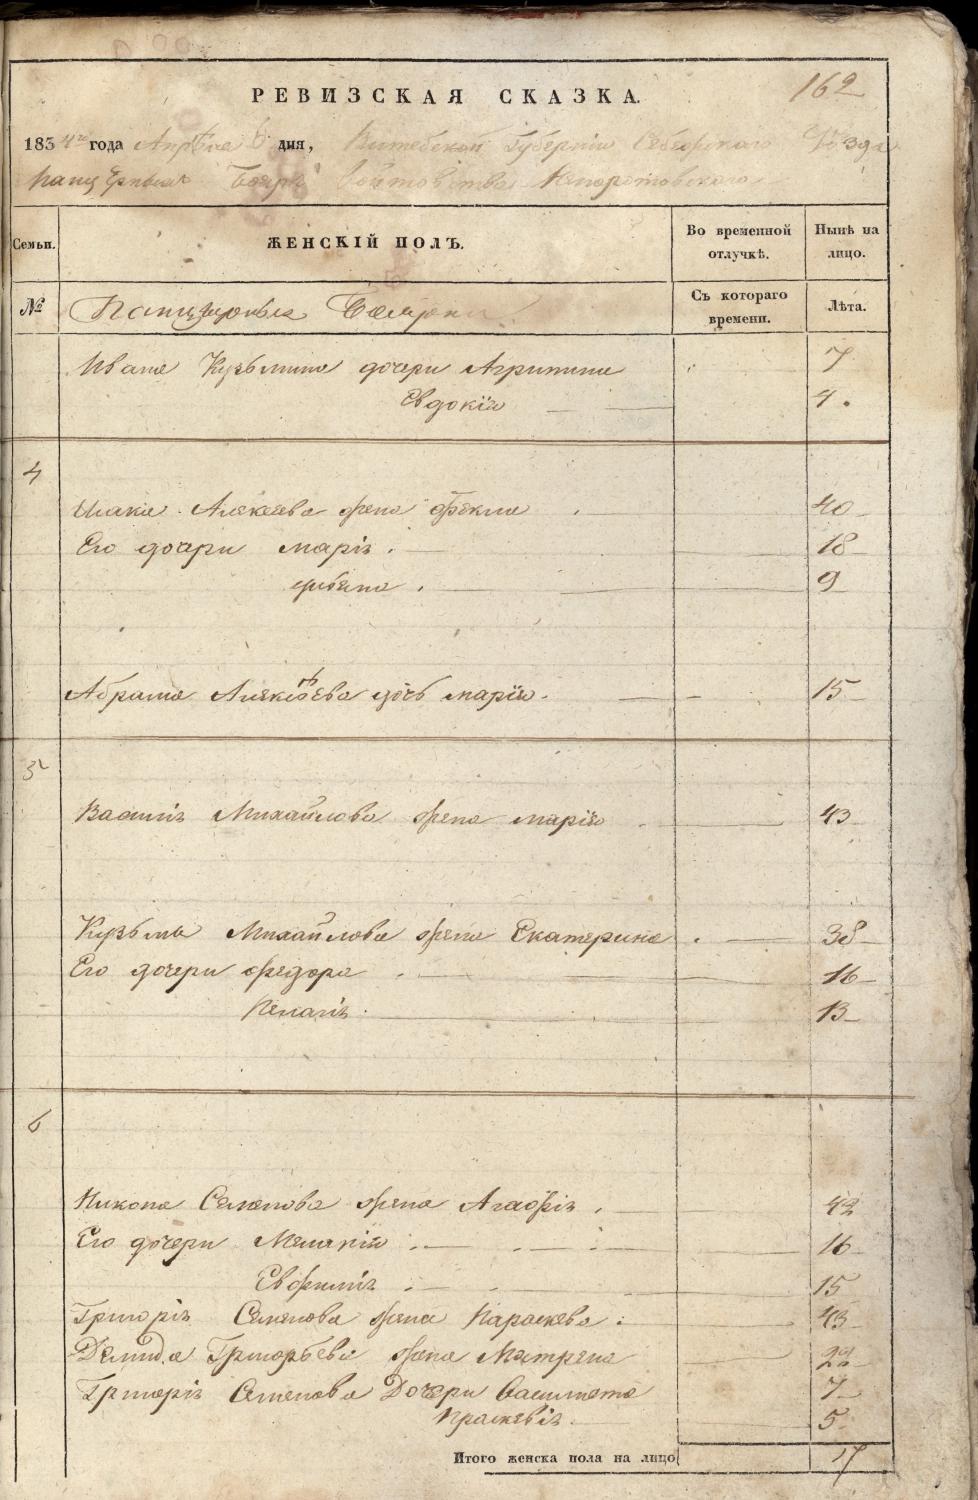 162
РЕВИЗСКАЯ СКАЗКА.
1834го года Апрѣля 6 дня, Витебской Губерніи Себежскаго Уѣзда
Панцерныхъ Бояръ Войтовства Непоротовскаго
Семьи. ЖЕНСКІЙ ПОЛЪ. Во временной отлучкѣ. Нынѣ на лицо.
№ Панцерныя Боярки Съ котораго времени. Лѣта.
Ивана Кузьмина дочери Агрипина 7
Евдокія 4.
4
Исака Алексѣева жена Фекла 40
Его дочери Марія 18
9
Абрама Алексѣева дочь Марія 15
5
Василія Михайлова жена Марія 43
Кузьмы Михайлова жена Екатерина 38
Его дочери Федора 16
Пелагія 13
6
Никона Семенова жена Агафія 42
Его дочери Меланія 16
Евфимія 15
Григорія Семенова жена Параскева 43
Демида Григорьева жена Матрена 22
Григорія Семенова Дочери Василиста 7
Праскевія 5
Итого женска пола на лицо 17